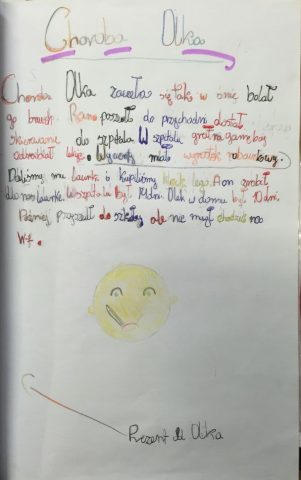 Choroba Olka
Choroba Olka zaczeła się tak w nie bolał
go brzuch. Rano poszedł do przychodni dostał
skierowanie do szpitala. W szpitalu grał na gameboy
odrabiał lekcje. Wycięcie miał wyrostek robaczkowy.
Daliśmy mu laurke i kupiliśmy klocki lego. A on zrobił
dla nas laurke. W szpitalu był 14dni. Olek w domu był 10 dni.
Później przyszedł do szkoły ale nie mógł chodzić na
Wf.
Prezent dla Olka